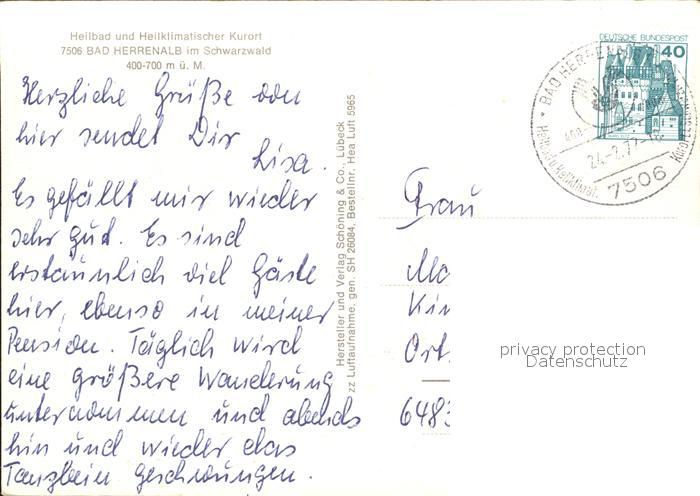 Heilbad und Heilklimatischer Kurort
7506 BAD HERRENALB im Schwarzwald
400-700 m ü. M.
Herzliche Grüße von
hier sendet Dir
Lisa.
Es gefällt mir wieder
sehr gut. Es sind
erstaunlich viel Gäste
hier, ebenso in meiner
Pension. Täglich wird
eine größere Wanderung
unternommen und abends
hin und wieder das
Tanzbein geschwungen.
Hersteller und Verlag Schöning & Co., Lübeck
zz Luftaufnahme, gen. SH 26084, Bestellnr. Hea Luft 5965
DEUTSCHE BUNDESPOST
40
BAD HERRENALB
24.-2.77
7506
Heilbad u. Heilklimat.
Kurort
Frau
Ma
Kin
Ort.
6483
privacy protection
Datenschutz